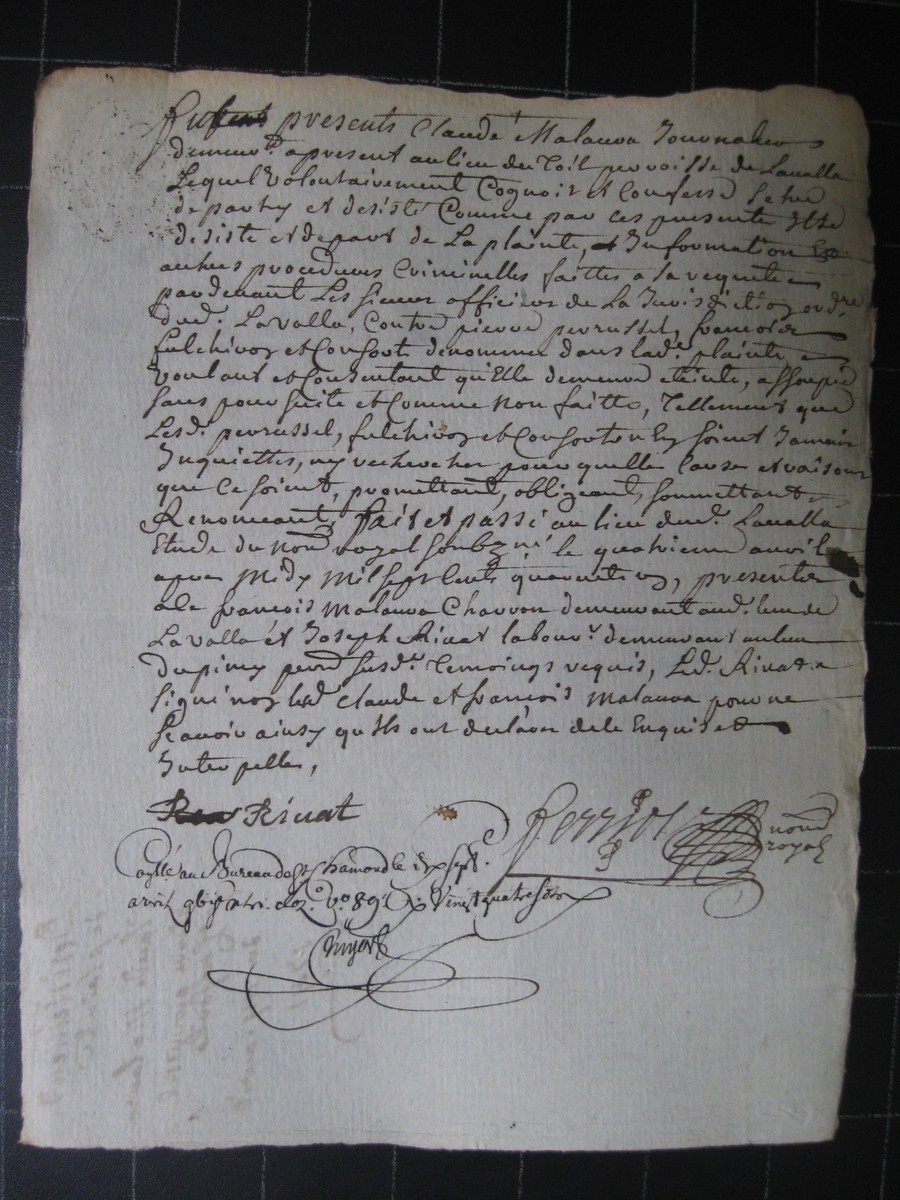 Fut presents Claude Malauva Journalier
demeur.t apresent au lieu du Toil perroisse de Lavalla
Lequel volontairement Cognoit et Confesse se tre
departy et desisté Comme par ces presente Il se
desiste et depart de La plainte, et Information
autres procedures Criminelles faittes a sa requette
pardevant Les sieurs officiers de La Jurisdiction ord.re
dud. Lavalla, Contre pierre perrussel, francois
fulchiron et Consorts denommes dans lad. plainte
voulant et Consentant qu'Elle demeure eteinte, assoupie
sans poursuite et Comme Non faitte, Tellement que
Lesd. perrussel, fulchiron et Consorts n'En soient Jamais
Inquiettes, ny rechercher pour quelle Cause et raison
que Ce soient, promettant, obligeant, soumettant
Renonceant, fait et passé au lieu dud. Lavalla
Etude du No.re royal soubzné le quatrieme avril
apres Midy Mil sept Cents quarente un, presents
a Ce francois Malauva Charron demeurant aud. lieu de
Lavalla et Joseph Rivat labour.r demeurant au lieu
du piney perr.sse susd. Temoings requis, Led. Rivat a
signé non lesd. Claude et françois Malauva pour ne
scavoir ainsy qu'Ils ont declaré de ce Enquis et
Interpellés,
Rivat
Perrier
no.re royal
Conllé au Bureau de St Chamond le
avril Vo 89 Vingt quatre sols